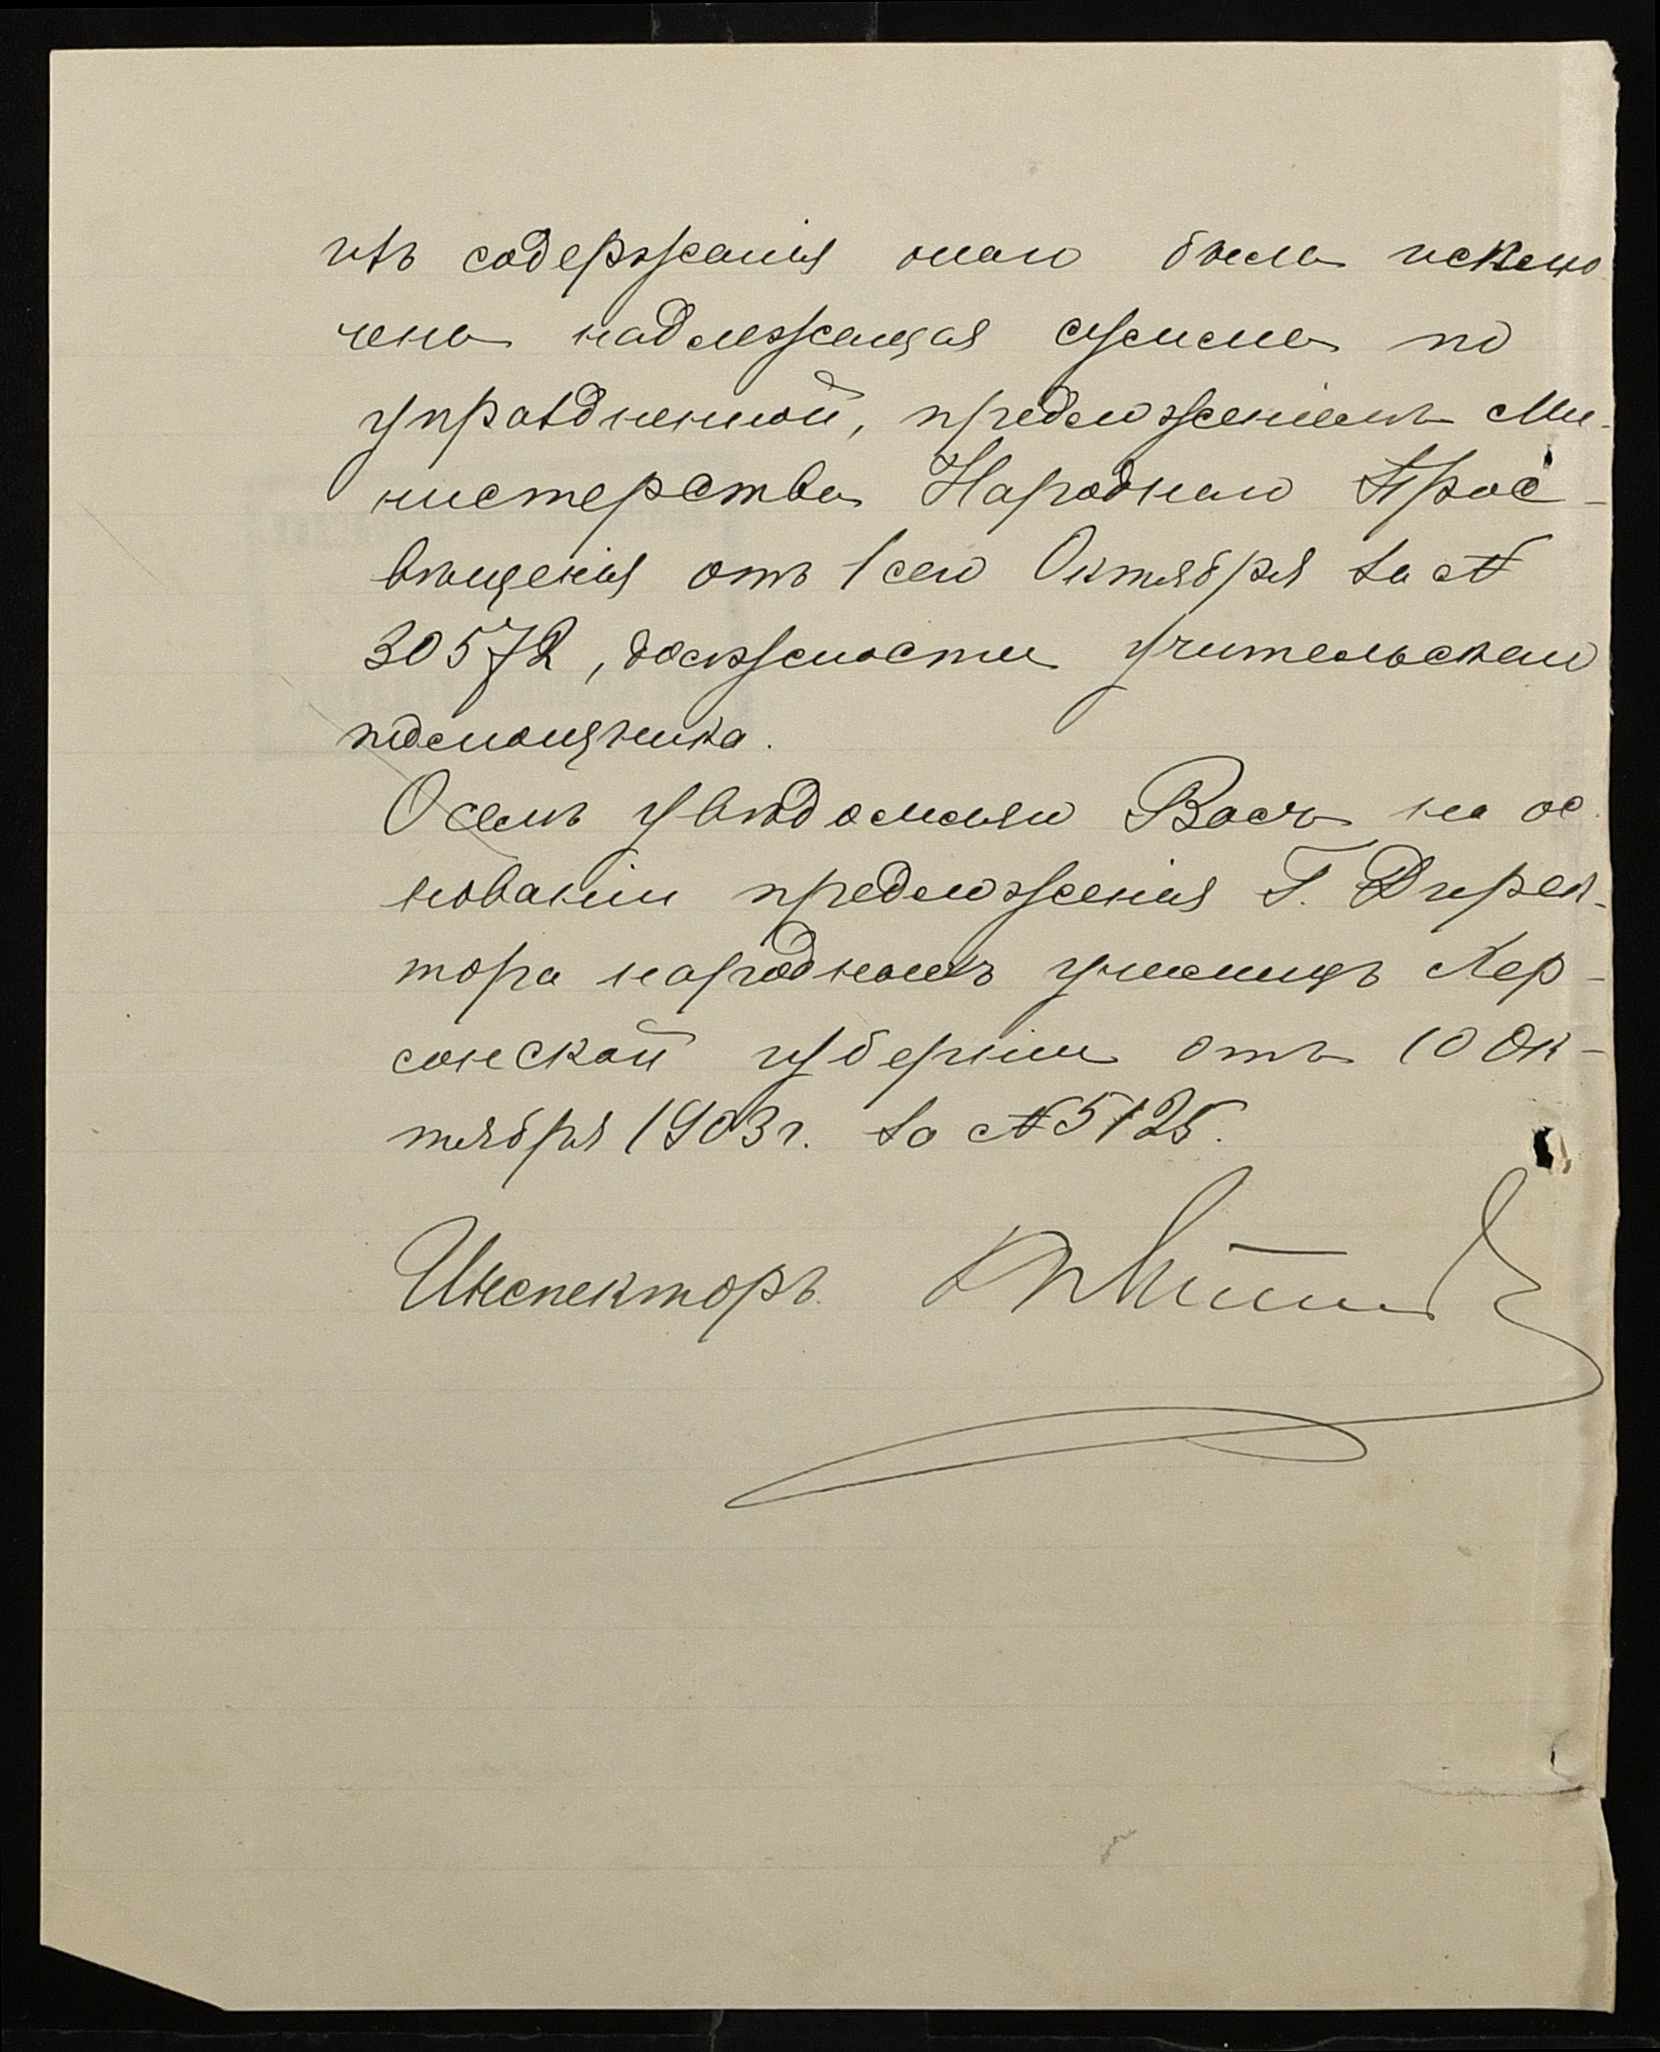 изъ содержанія онаго была исклю
чена надлежащая сумма по
упраздненной, предложеніемъ Ми-
нистерства Народнаго Прос-
вѣщенія отъ 1 сего Октября за №
30572, должности учительскаго
помощника.
О семъ увѣдомляю Васъ на ос-
нованіи предложенія Г. Дирек-
тора народныхъ училищъ Хер-
сонской губерніи отъ 10 Ок-
тября 1903 г. за № 5125.
Инспекторъ